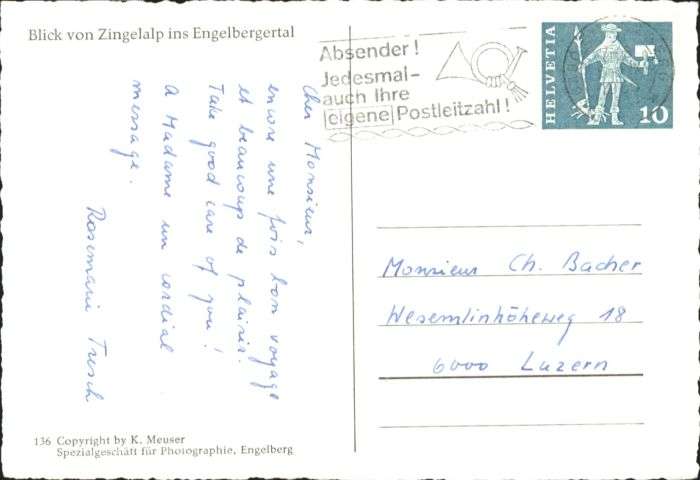 Blick von Zingelalp ins Engelbergertal
Cher Monsieur,
encore une fois bon voyage
et beaucoup de plaisir.
Take good care of you!
A Madame un cordial
message.
Rosemarie Tresch
136 Copyright by K. Meuser
Spezialgeschäft für Photographie, Engelberg
Absender!
Jedesmal-
auch Ihre
eigene Postleitzahl!
HELVETIA
10
Monsieur Ch. Bacher
Wesemlinhöheweg 18
6000 Luzern